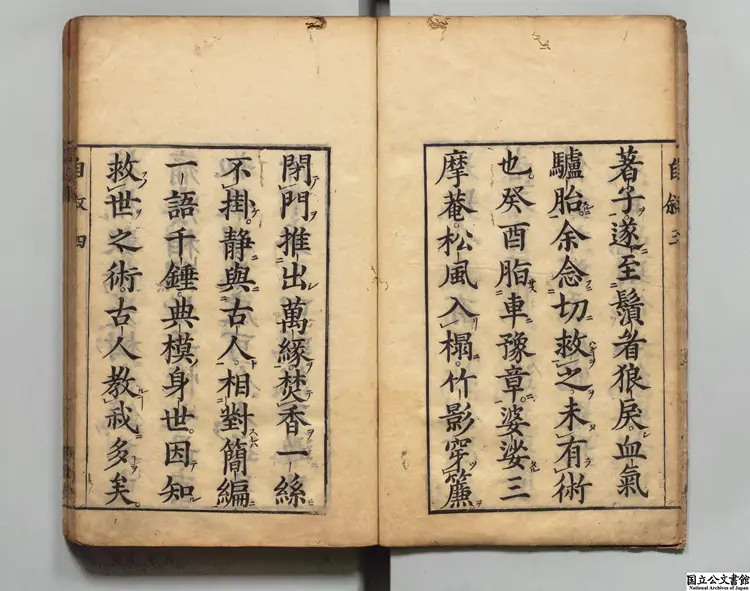 著子遂至鬚者狼戾血氣
驢胎余念切救之未有術
也癸酉脂車豫章婆娑三
摩菴松風入榻竹影穿簾
自叙三
閉門推出萬緣焚香一絲
不掛静與古人相對簡編
一語千錘典模身世因知
救世之術古人教戒多矣
自叙四
国立公文書館
National Archives of Japan